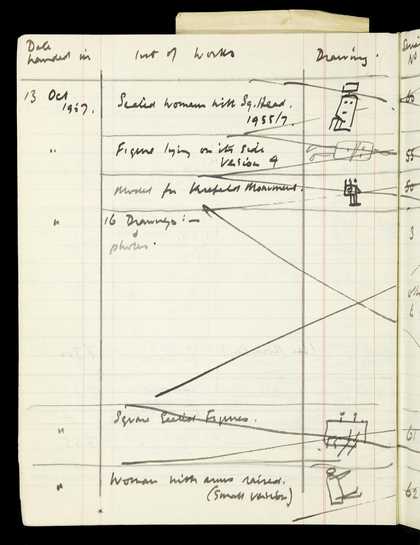 Date
handed in
List of Works
Drawing.
Serial
No
13 Oct
1957.
Seated woman with Sq. Head.
1955/7.
"
Figure lying on its side
Version 4
55
Model for Krefeld Monument.
50
"
16 Drawings :—
&
photos.
3
6
"
Square Seated Figures.
61
"
Woman with arms raised.
(Small version)
62